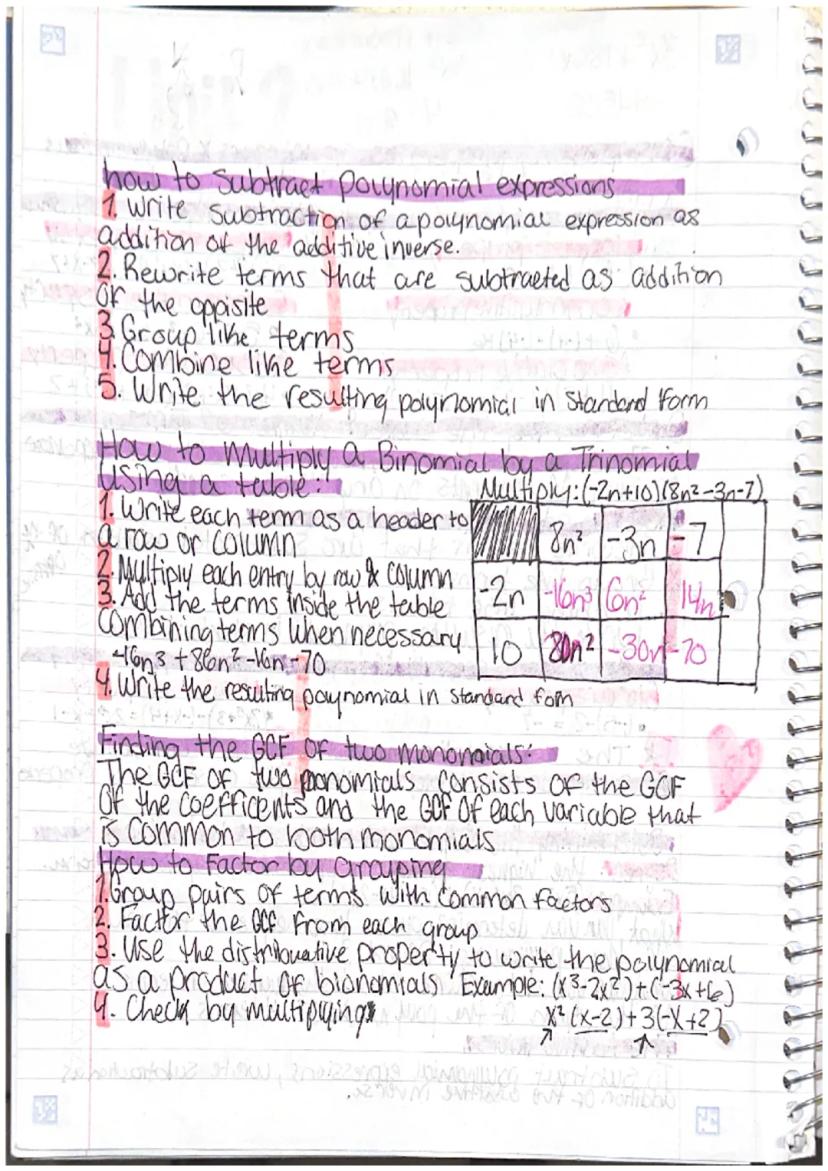 how to Subtract polynomial expressions
1. Write subtraction of a polynomial expression as
addition of the additive inverse.
2. Rewrite terms that are subtracted as addition
of the oppisite
3. Group like terms
4. Combine like terms
5. Write the resulting polynomial in Standard form
How to Multiply a Binomial by a Trinomial
Using a table:
Multiply: (-2n+10)(8n²-3n-7)
1. Write each term as a header to
a row or column
2. Multiply each entry by row & column
3. Add the terms inside the table
combining terms when necessary
-16n³ + 86n² -16n -70
4. Write the resulting polynomial in standard fom
8n² -3n -7
-2n -16n³ 6n² 14n
10 80n² -30n -70
Finding the GCF of two monomials:
The GCF of two monomials consists of the GCF
of the coefficents and the GCF of each variable that
is common to both monomials
How to Factor by grouping
1. Group pairs of terms with common factors
2. Factor the GCF from each group
3. Use the distribuative property to write the polynomial
as a product of bionomials Example: (x³-2x²)+(-3x+6)
4. Check by multiplying
x²(x-2)+3(-x+2)